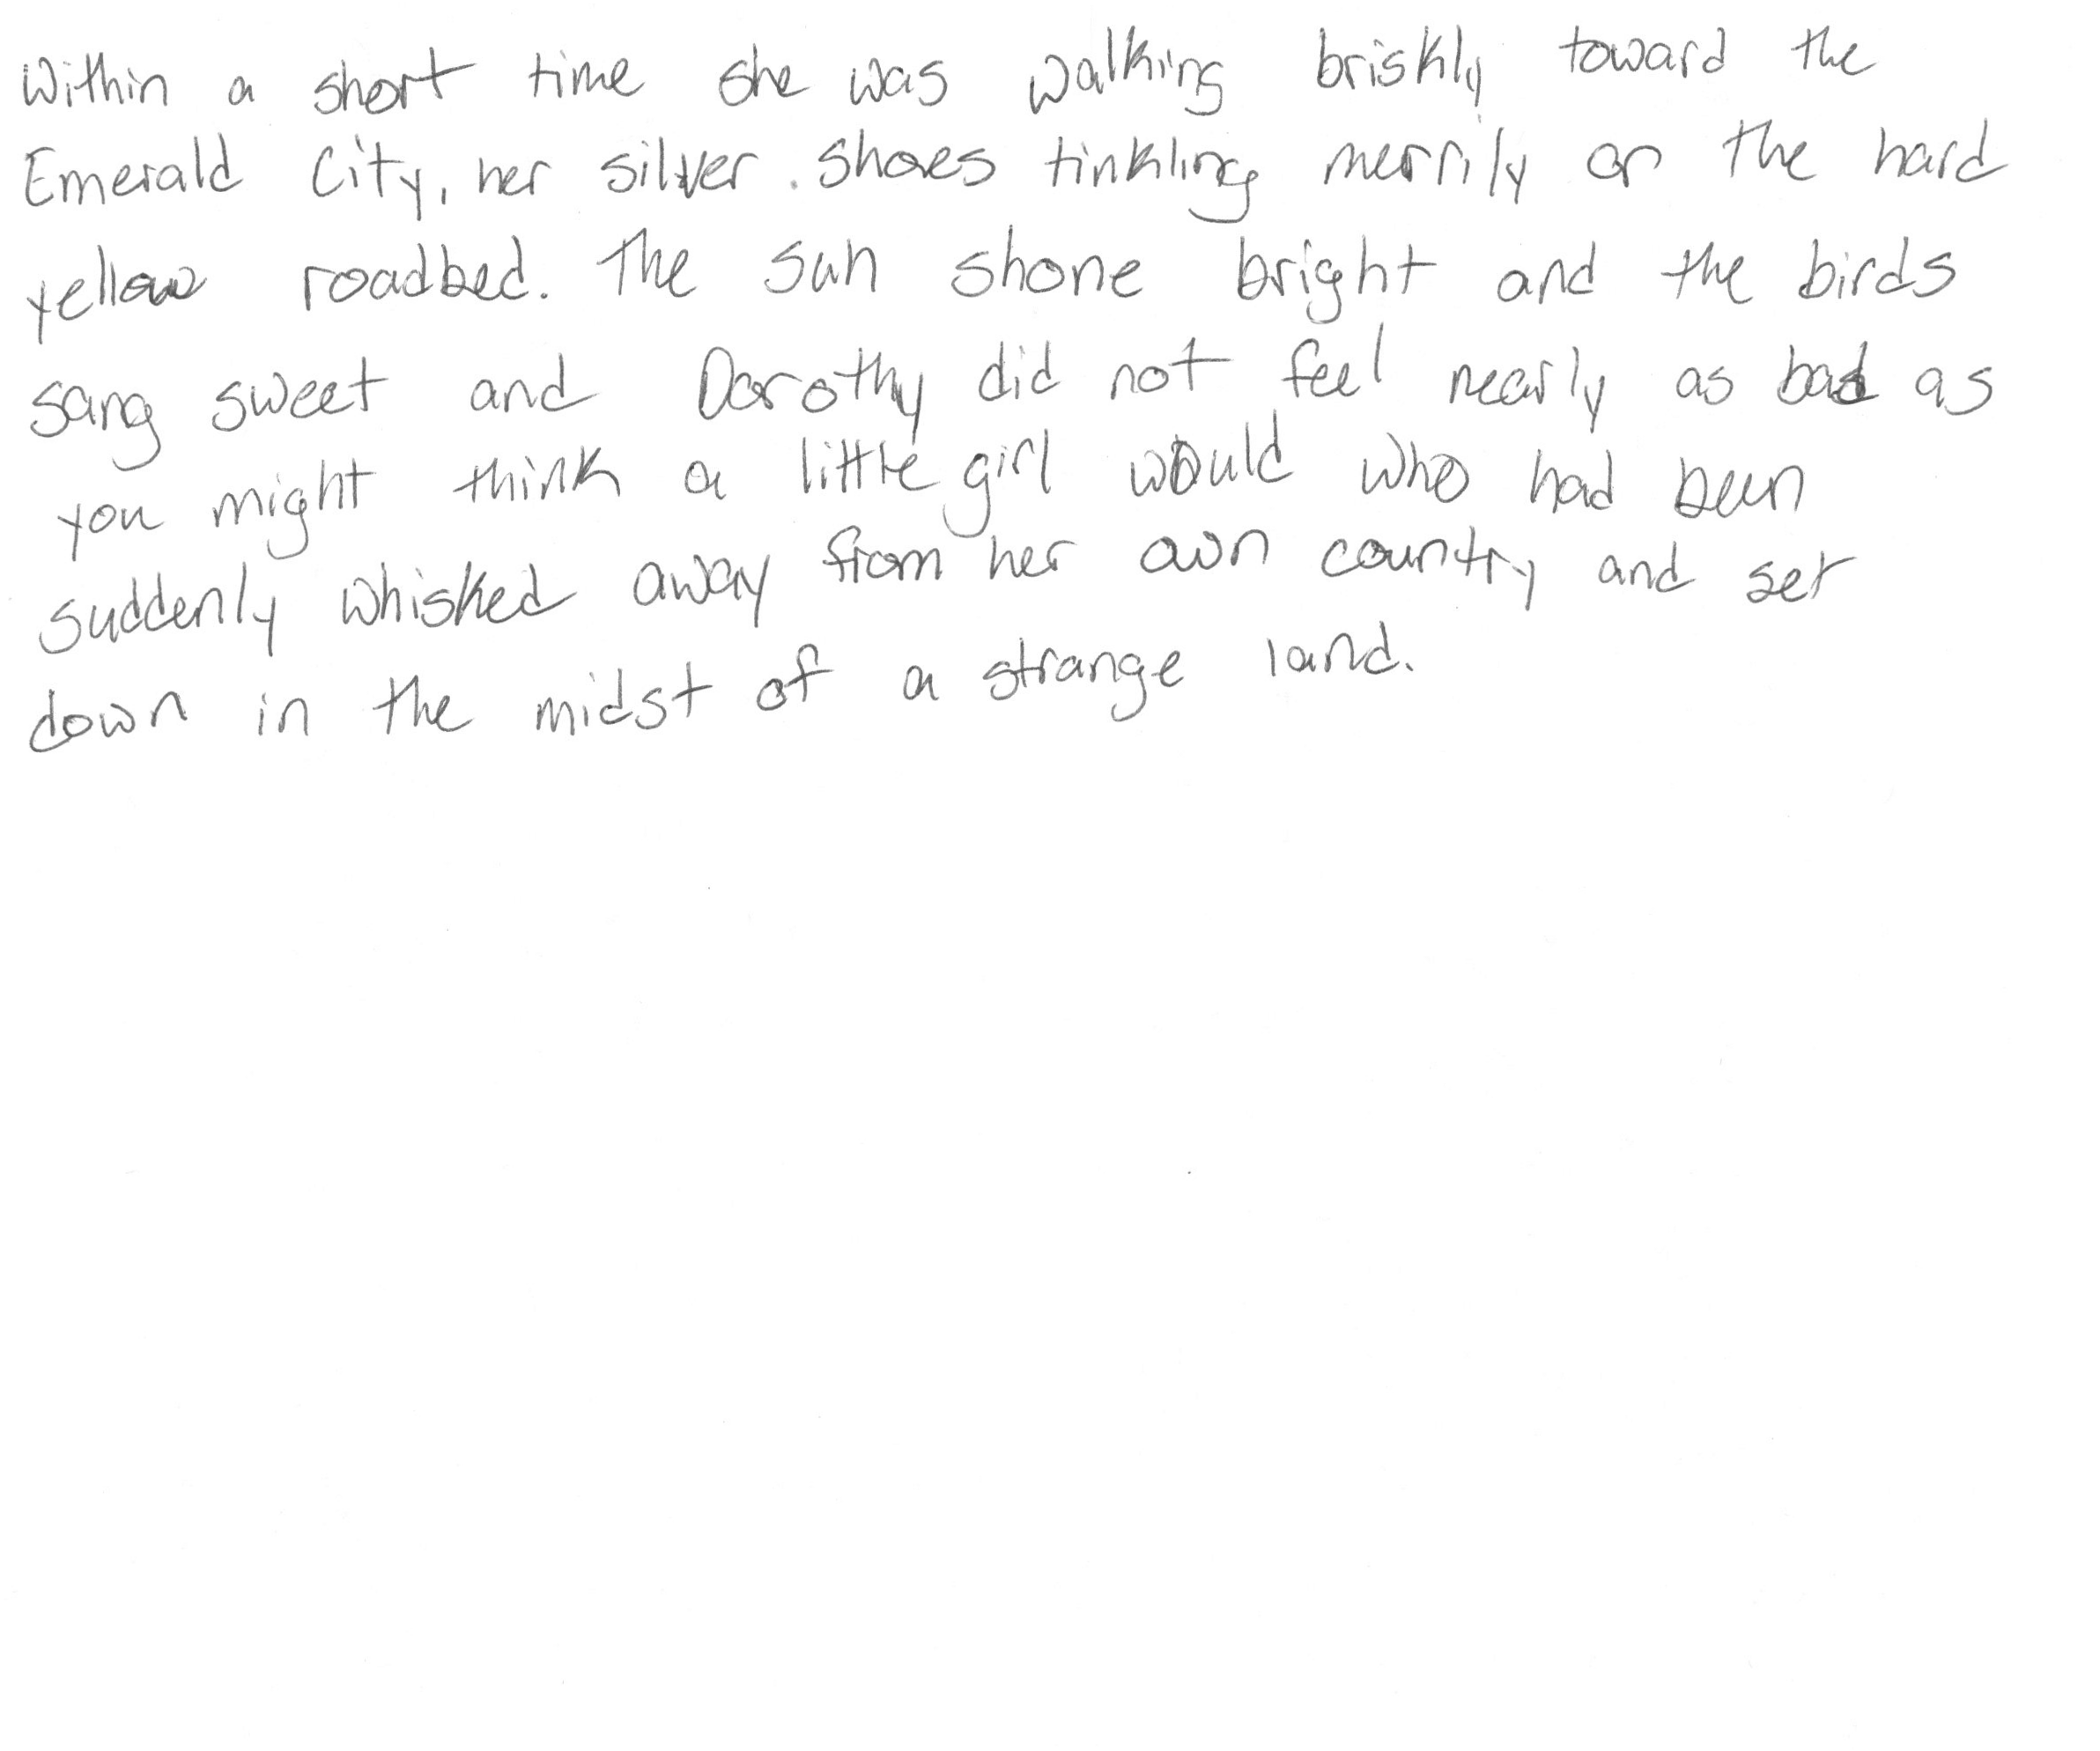 Within a short time she was walking briskly toward the
Emerald City, her silver shoes tinkling merrily on the hard
yellow roadbed. The sun shone bright and the birds
sang sweet and Dorothy did not feel nearly as bad as
you might think a little girl would who had been
suddenly whisked away from her own country and set
down in the midst of a strange land.